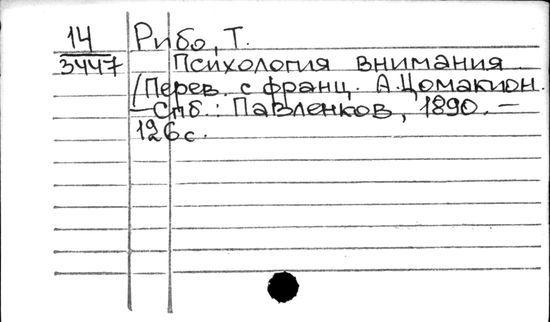 14
3447
Рибо, Т.
Психология внимания
/Перев. с франц. А. Цомакион.
—Спб.: Павленков, 1890. —
126 с.